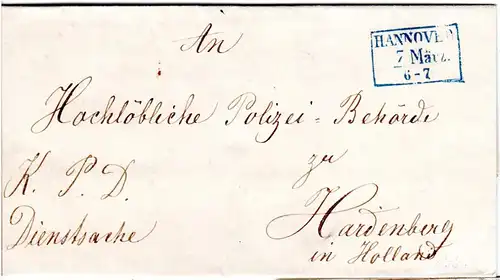 An
HANNOVER
7 März.
6-7
Hochlöbliche Polizei=Behörde
zu
K. P. D.
Hardenberg
Dienstsache
in Holland